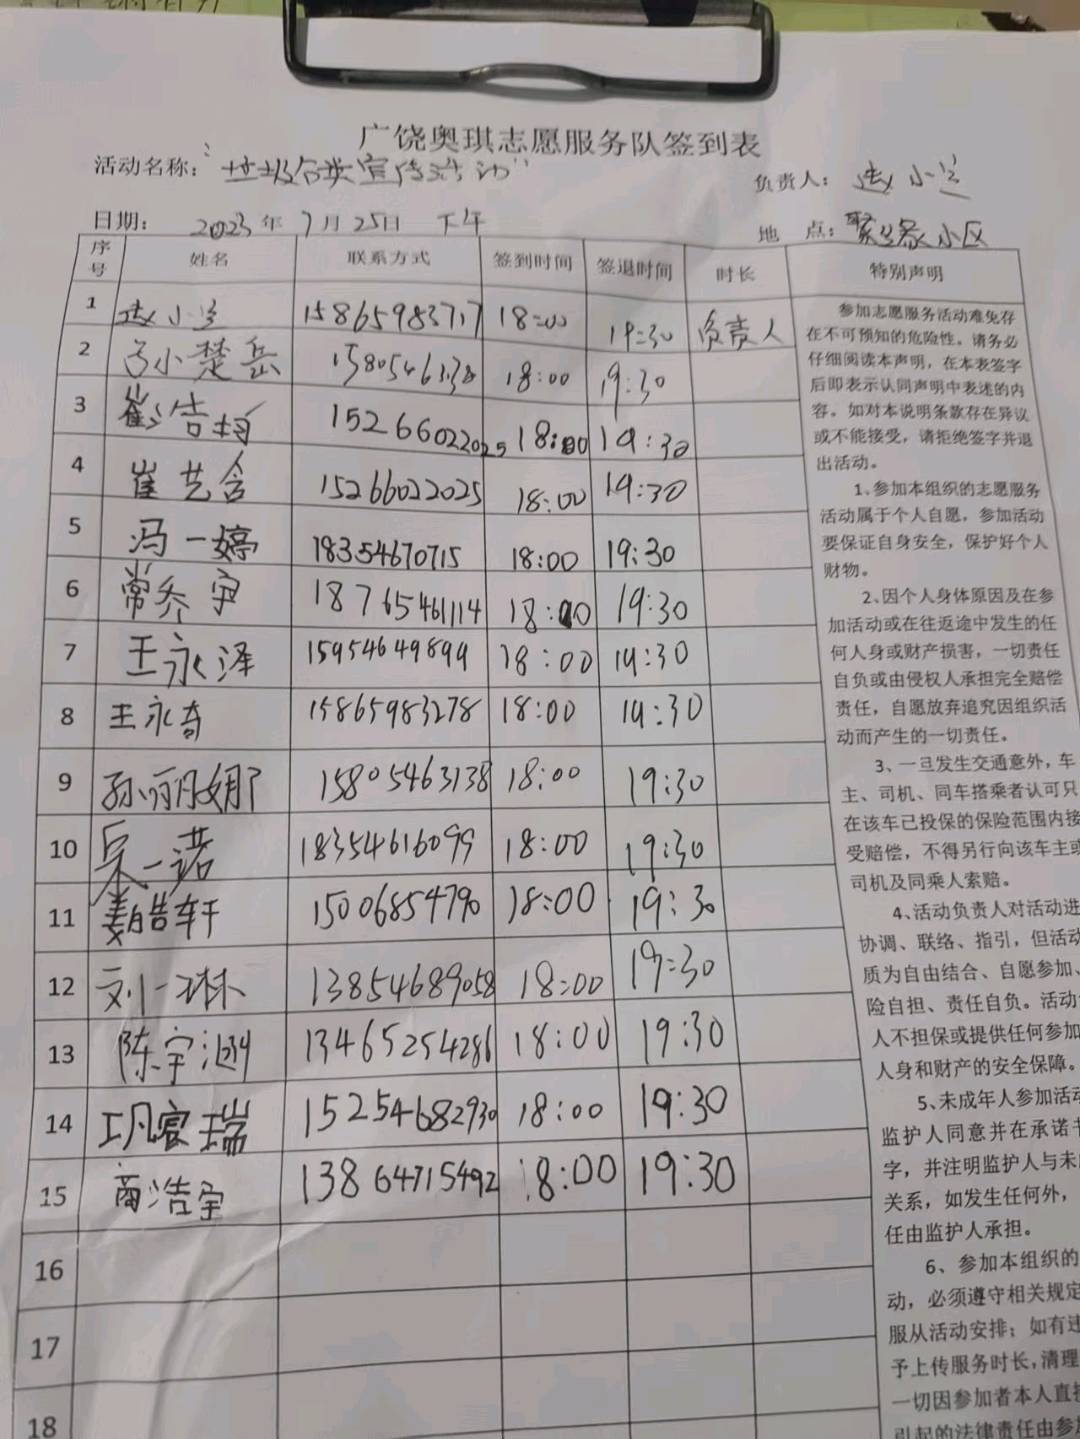 广饶奥琪志愿服务队签到表
活动名称：“垃圾分类宣传活动” 负责人：赵小兰
日期： 2023年7月25日 下午 地 点：小区
序号 姓名 联系方式 签到时间 签退时间 时长 特别声明
1 赵小兰 15865983717 18:00 19:30 负责人
2 小楚岳 18:00 19:30
3 崔浩 15266022025 18:00 19:30
4 崔艺含 15266022025 18:00 19:30
5 冯一婷 18354670715 18:00 19:30
6 常乔 18765461114 18:00 19:30
7 王永泽 15954649899 18:00 19:30
8 王永奇 15865983278 18:00 19:30
9 孙丽娜 15805463138 18:00 19:30
10 一诺 18354616099 18:00 19:30
11 姜皓轩 15006854790 18:00 19:30
12 刘一琳 13854689058 18:00 19:30
13 陈宇 13465254286 18:00 19:30
14 瑞 15254682930 18:00 19:30
15 商浩宇 13864715492 18:00 19:30
16
17
18
参加志愿服务活动难免存
在不可预知的危险性。请务必
仔细阅读本声明，在本表签字
后即表示认同声明中表述的内
容。如对本说明条款存在异议
或不能接受，请拒绝签字并退
出活动。
1、参加本组织的志愿服务
活动属于个人自愿，参加活动
要保证自身安全，保护好个人
财物。
2、因个人身体原因及在参
加活动或在往返途中发生的任
何人身或财产损害，一切责任
自负或由侵权人承担完全赔偿
责任，自愿放弃追究因组织活
动而产生的一切责任。
3、一旦发生交通意外，车
主、司机、同车搭乘者认可只
在该车已投保的保险范围内接
受赔偿，不得另行向该车主或
司机及同乘人索赔。
4、活动负责人对活动进
协调、联络、指引，但活动
质为自由结合、自愿参加、
险自担、责任自负。活动
人不担保或提供任何参加
人身和财产的安全保障。
5、未成年人参加活动
监护人同意并在承诺书
字，并注明监护人与未
关系，如发生任何外，
任由监护人承担。
6、参加本组织的
动，必须遵守相关规定
服从活动安排；如有违
予上传服务时长，清理
一切因参加者本人直接
引起的法律责任由参加